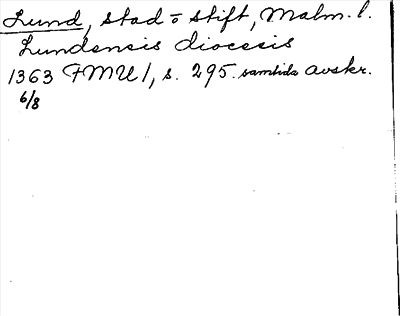 Lund, stad o stift, Malm. l.
Lundensis diocesis
1363 FMU I, s. 295. samtida avskr.
6/8